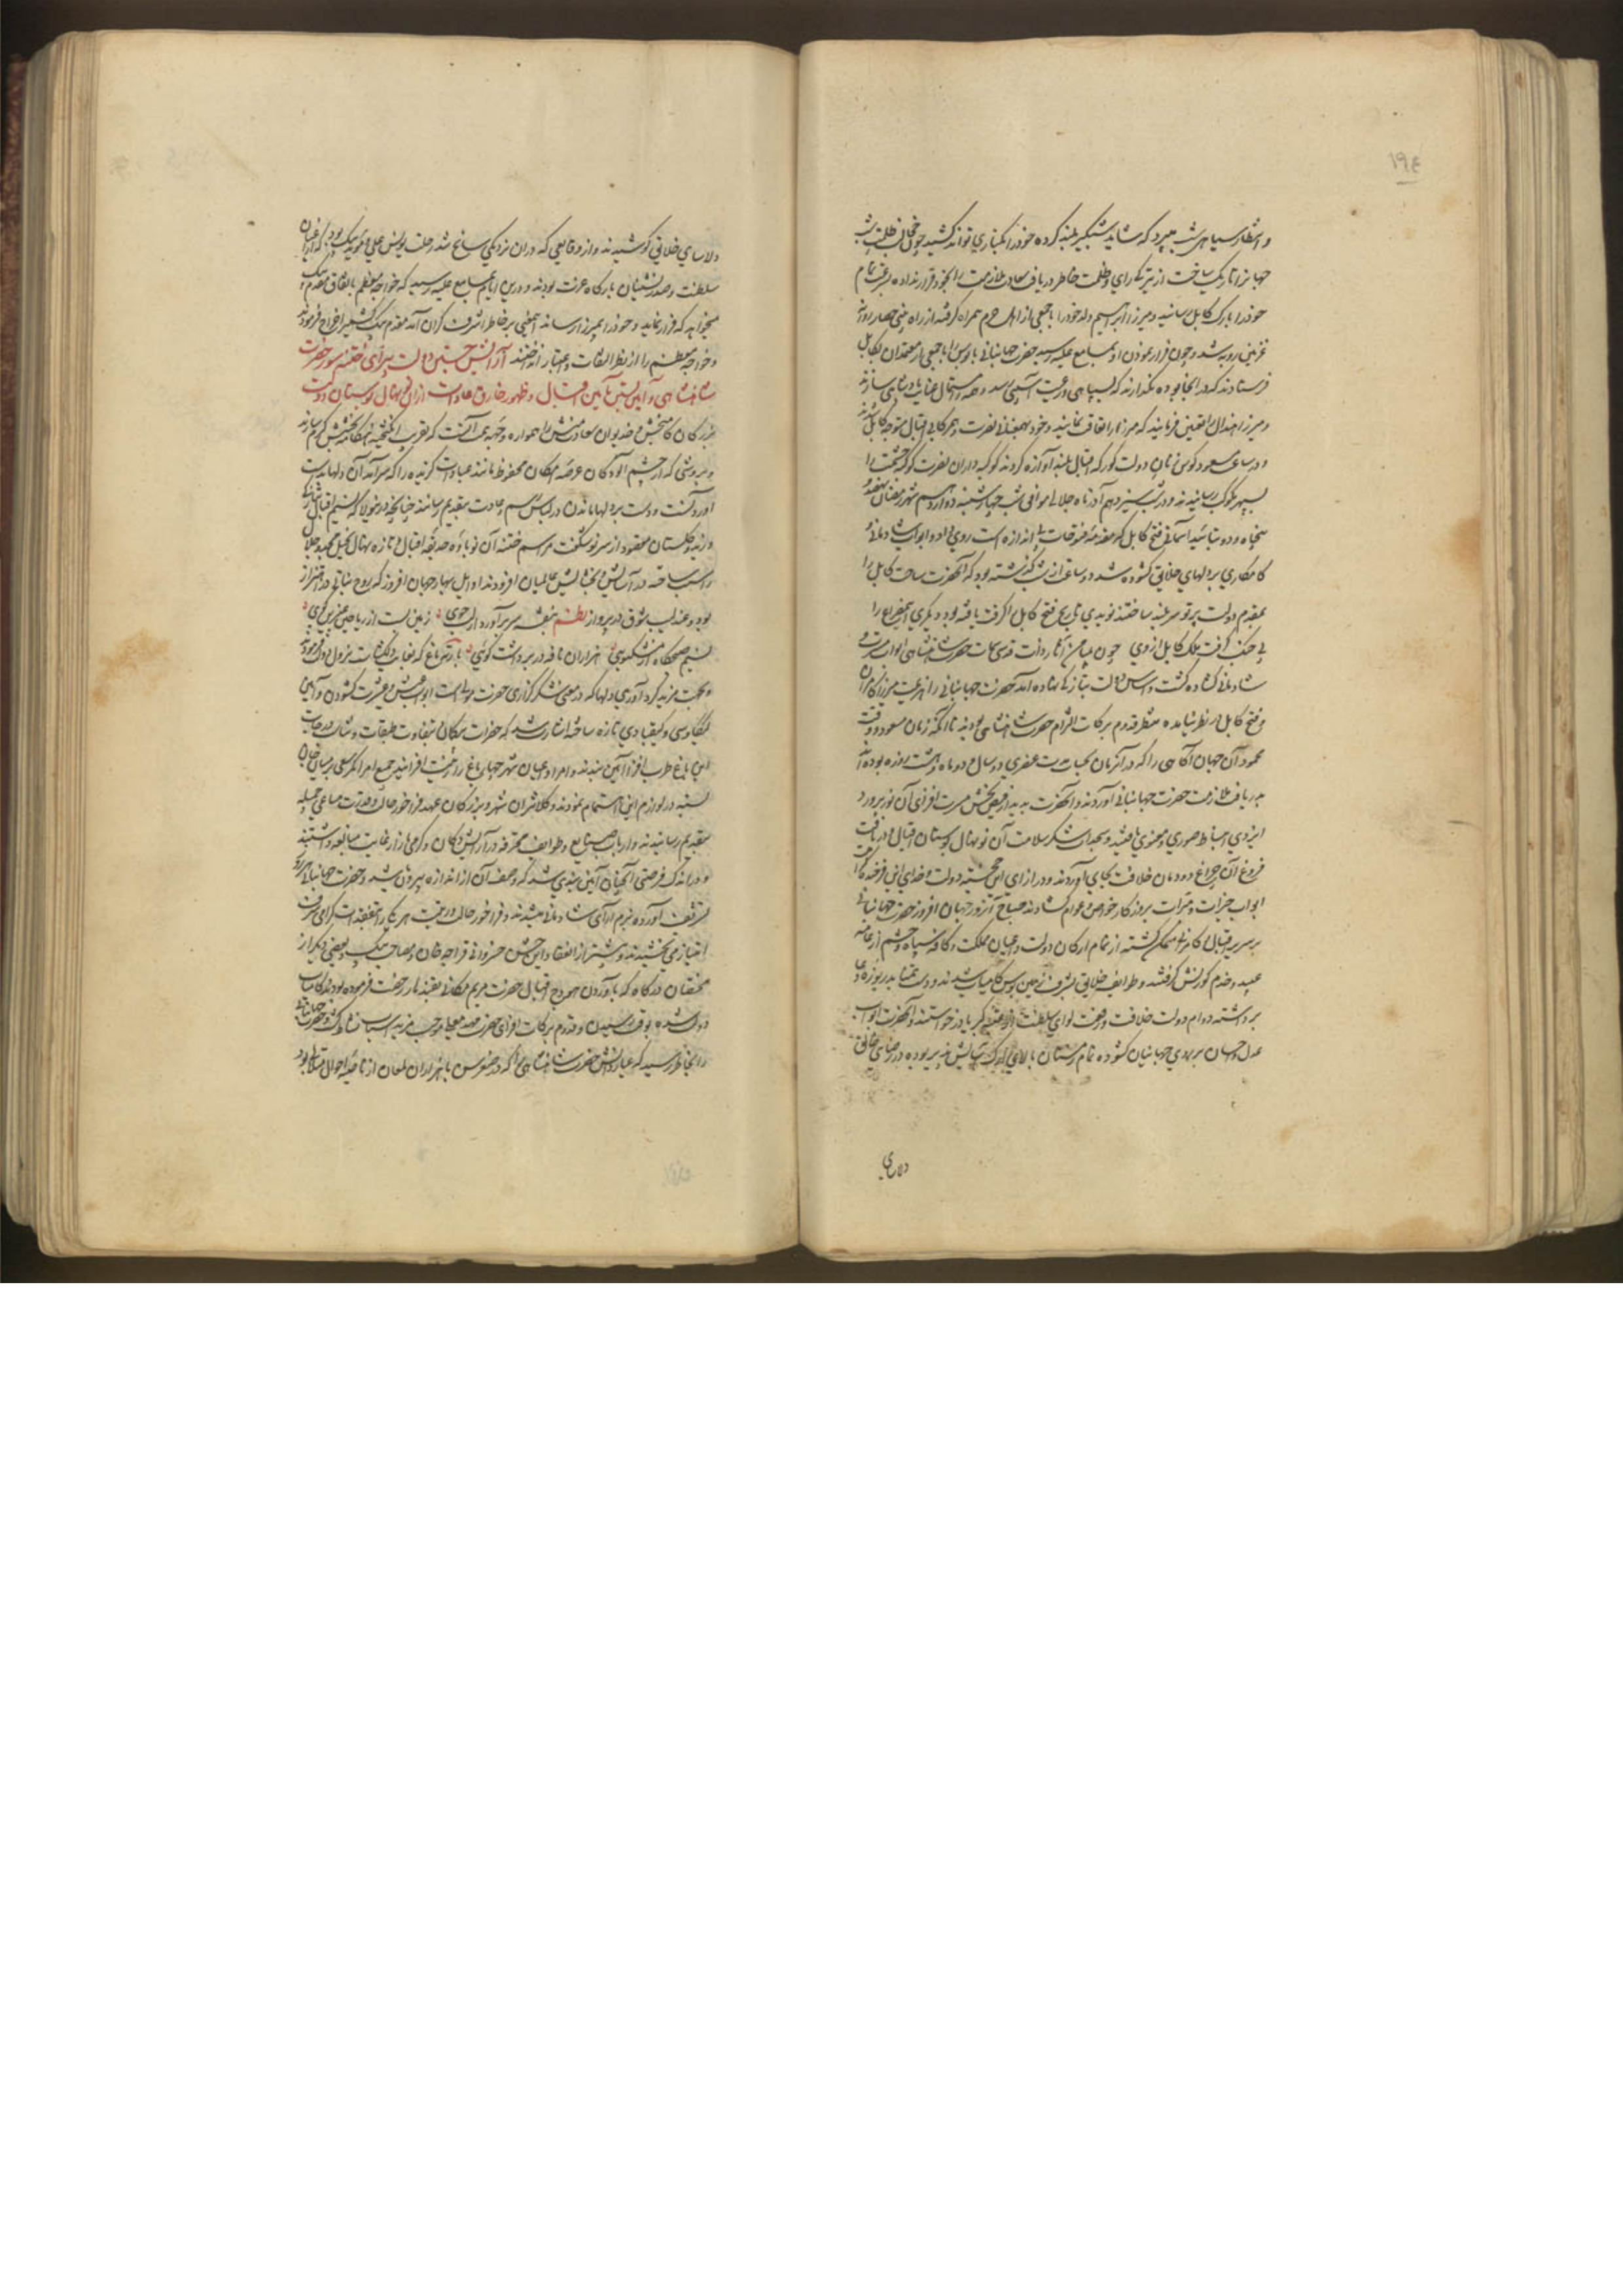 ١٩٤
و انتظار سیاهی شب میبرد که شاید شبگیر بلند کرده خود را بکناری تواند کشید چون حجاب ظلمت شب
جهانرا تاریک ساخت از تیرگی رای و ظلمت خاطر دریافت سعادت ملازمت را بخود قرار نداده بسرعت تمام
خود را بارک کابل رسانید و میرزا ابراهیم ولد خود را با جمعی از اهل حرم همراه گرفته از راه بینی حصار روانه
غزنین رویه شد و چون فرار نمودن او بمسامع علیه رسید حضرت جهانبانی بابوس را با جمعی از معتمدان بکابل
فرستادند که در آنجا بوده نگذارند که بسپاهی و رعیت آسیبی رسد و همه را استمال عنایت پادشاهی سازند
و میرزا هندال را تعیین فرمایند که میرزا را تعاقب نمایند و خود بهمعنانی نصرت و همرکابی اقبال متوجه کابل شدند
و در ساعت مسعود کوس زنان دولت کورکه اقبال بلند آوازه کردند کوکبه داران نصرت کوکبه حشمت را
بسپهر کوکب رسانیدند و در شب سیزدهم آذر ماه جلالی موافق شب چهارشنبه دوازدهم شهر رمضان نهصد و
پنجاه و دو بتائید آسمانی فتح کابل که مقدمه فتوحات بی اندازه است روی داد و ابواب شادمانی و
کامکاری بر دلهای خلایق کشوده شد دو ساعت از شب گذشته بود که آنحضرت ساحت کابل را
بمقدم دولت پرتو سربلند ساختند نویدی تاریخ فتح کابل را کرفت یافته بود و دیگری این مصراع را
بی جنک گرفت ملک کابل از وی چون میامن آثار ذات قدسی سمات حضرت شاهنشاهی ابواب مسرت و
شادمانی گشاده گشت و اساس دولت بتازگی نهاده آمد حضرت جهانبانی را هزیمت میرزا کامران
و فتح کابل در نظر نیامده منتظر قدوم برکات التزام حضرت شاهنشاهی بودند تا آنکه زمان مسعود و وقت
محمود آن جهان آگاهی را که در آن زمان بحساب عنصری دو سال و دو ماه و هشت روزه بوده اند
بدریافت ملازمت حضرت جهانبانی آوردند و آنحضرت بدیدار فیض بخش مسرت افزای آن نورپرورد
ایزدی انبساط صوری و معنوی یافتند و سجدات شکر سلامت آن نونهال بوستان اقبال و دریافت
فروغ آن چراغ دودمان خلافت بجای آوردند و در ازای این خجسته دولت خدای این فرخنده کار
ابواب خیرات و مبرات بر روزگار خواص و عوام گشادند صباح آنروز جهان افروز حضرت جهانبانی
بر سریر اقبال کامرانی متمکن گشته از تمام ارکان دولت و اعیان مملکت و کافه سپاه و حشم از عامه
عبید و خدم کورنش گرفتند و طوایف خلایق بشرف زمین بوس کامیاب شدند و دست تمنا بدریوزه دعا
برداشته دوام دولت خلافت و رفعت لوای سلطنت از عتبه کبریا درخواستند و آنحضرت ابواب
عدل و احسان بر روی جهانیان کشوده تمام زمستان بالای ارک آسایش پذیر بوده در رضای خالق
دلاسای
دلاسای خلایق کوشیدند و از وقایعی که در آن نزدیکی سانح شد رحلت یونس علی و موید بیک بود که از اعیان
سلطنت و صدرنشینان بارگاه عزت بودند و درین ایام بمسامع علیه رسید که خواجه معظم باتفاق مقدم بیک
میخواهد که فرار نماید و خود را بمیرزا رساند اینمعنی بر خاطر اشرف گران آمد مقدم بیک را بکشمیر اخراج فرمودند
و خواجه معظم را از نظر التفات و اعتبار انداختند آرایش جشن دولت پیرای ختنه سور حضرت
شاهنشاهی و آیین بستن بآیین اقبال و ظهور خارق عادات از آن نونهال بوستان دولت
بزرگان کامبخش و خدیوان سعادت منش را همواره وجهه همت آنست که تقریب انگیخته هنگامه بخشش گرم سازند
و بروشی که از چشم آلودگان عرصه امکان محفوظ مانند عبادات گزیده را که سرآمد آن دلها بدست
آوردنست و دست بر دلها ماندن در لباس رسم و عادت بتقدیم رسانند چنانچه درینولا که نسیم اقبال بتازگی
وزید و گلستان مقصود از سر نو شکفت مراسم ختنه آن نوباوه حدیقه اقبال و تازه نهال نخیل مجد و جلال
را سبب ساخته در آسایش و بخشایش عالمیان افزودند اوایل بهار جهان افروز که روح نباتی در اهتزاز
بود و عندلیب شوق در پرواز نظم بنفشه سر برآورد از لب جوی زمین گشت از ریاحین عنبرین بوی
نسیم صبحگاه از مشکبویی هزاران نافه در بر داشت گویی بارته باغ که بغایت دلگشاست نزول دولت فرمودند
و بجهت مزید گرد آوری دلها که در معنی شکرگزاری حضرت مولی است ابواب عیش و عشرت گشودن و آیین
کیکاوسی و کیقبادی تازه ساخته اشارت شد که حضرات بیگمان بتفاوت طبقات و شئان درجات
این باغ طرب افزا آیین بندند و امرا و اعیان شهر چهار باغ را زینت افزایند جمیع امرا کمر سعی بر میان جان
بسته در لوازم این اهتمام نمودند و کلانتران شهر و بزرگان عهد فراخور حال و قدرت مساعی جمیله
بتقدیم رسانیدند و ارباب صنایع و طوایف محترفه در آرایش دکان و گرمی بازار غایت مبالغه داشتند
و در اندک فرصتی آنچنان آیین بندی شد که وصف آن از اندازه بیرون باشد و حضرت جهانبانی هر روز
تشریف آورده بزم آرای شادمانی میشدند و فراخور حالت و رعیت هر یک را بتفقدات گرامی شرف
امتیاز می بخشیدند و پیشتر از انعقاد این جشن خسروانی قراچه خان و مصاحب بیک و بعضی دیگر از
مخلصان درگاه که بآوردن هودج اقبال حضرت مریم مکانی بقندهار رخصت فرموده بودند کامیاب
دولت شده بوقت رسیدن و قدوم برکات افزای حضرت مهد معلی موجب مزید اسباب نشاط گشت و حضرت جهانبانی
را بخاطر رسید که عیار دانش حضرت شاهنشاهی را که در صغر سن با هزاران لمعان از ناصیه احوال متلالی بود